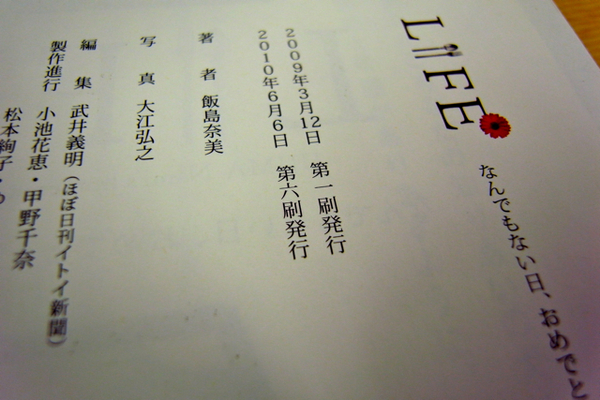 LIFE
なんでもない日、おめでと
2009年3月12日 第一刷発行
2010年6月6日 第六刷発行
著者 飯島奈美
写真 大江弘之
編集 武井義明(ほぼ日刊イトイ新聞)
製作進行 小池花恵・甲野千奈
松本絢子・